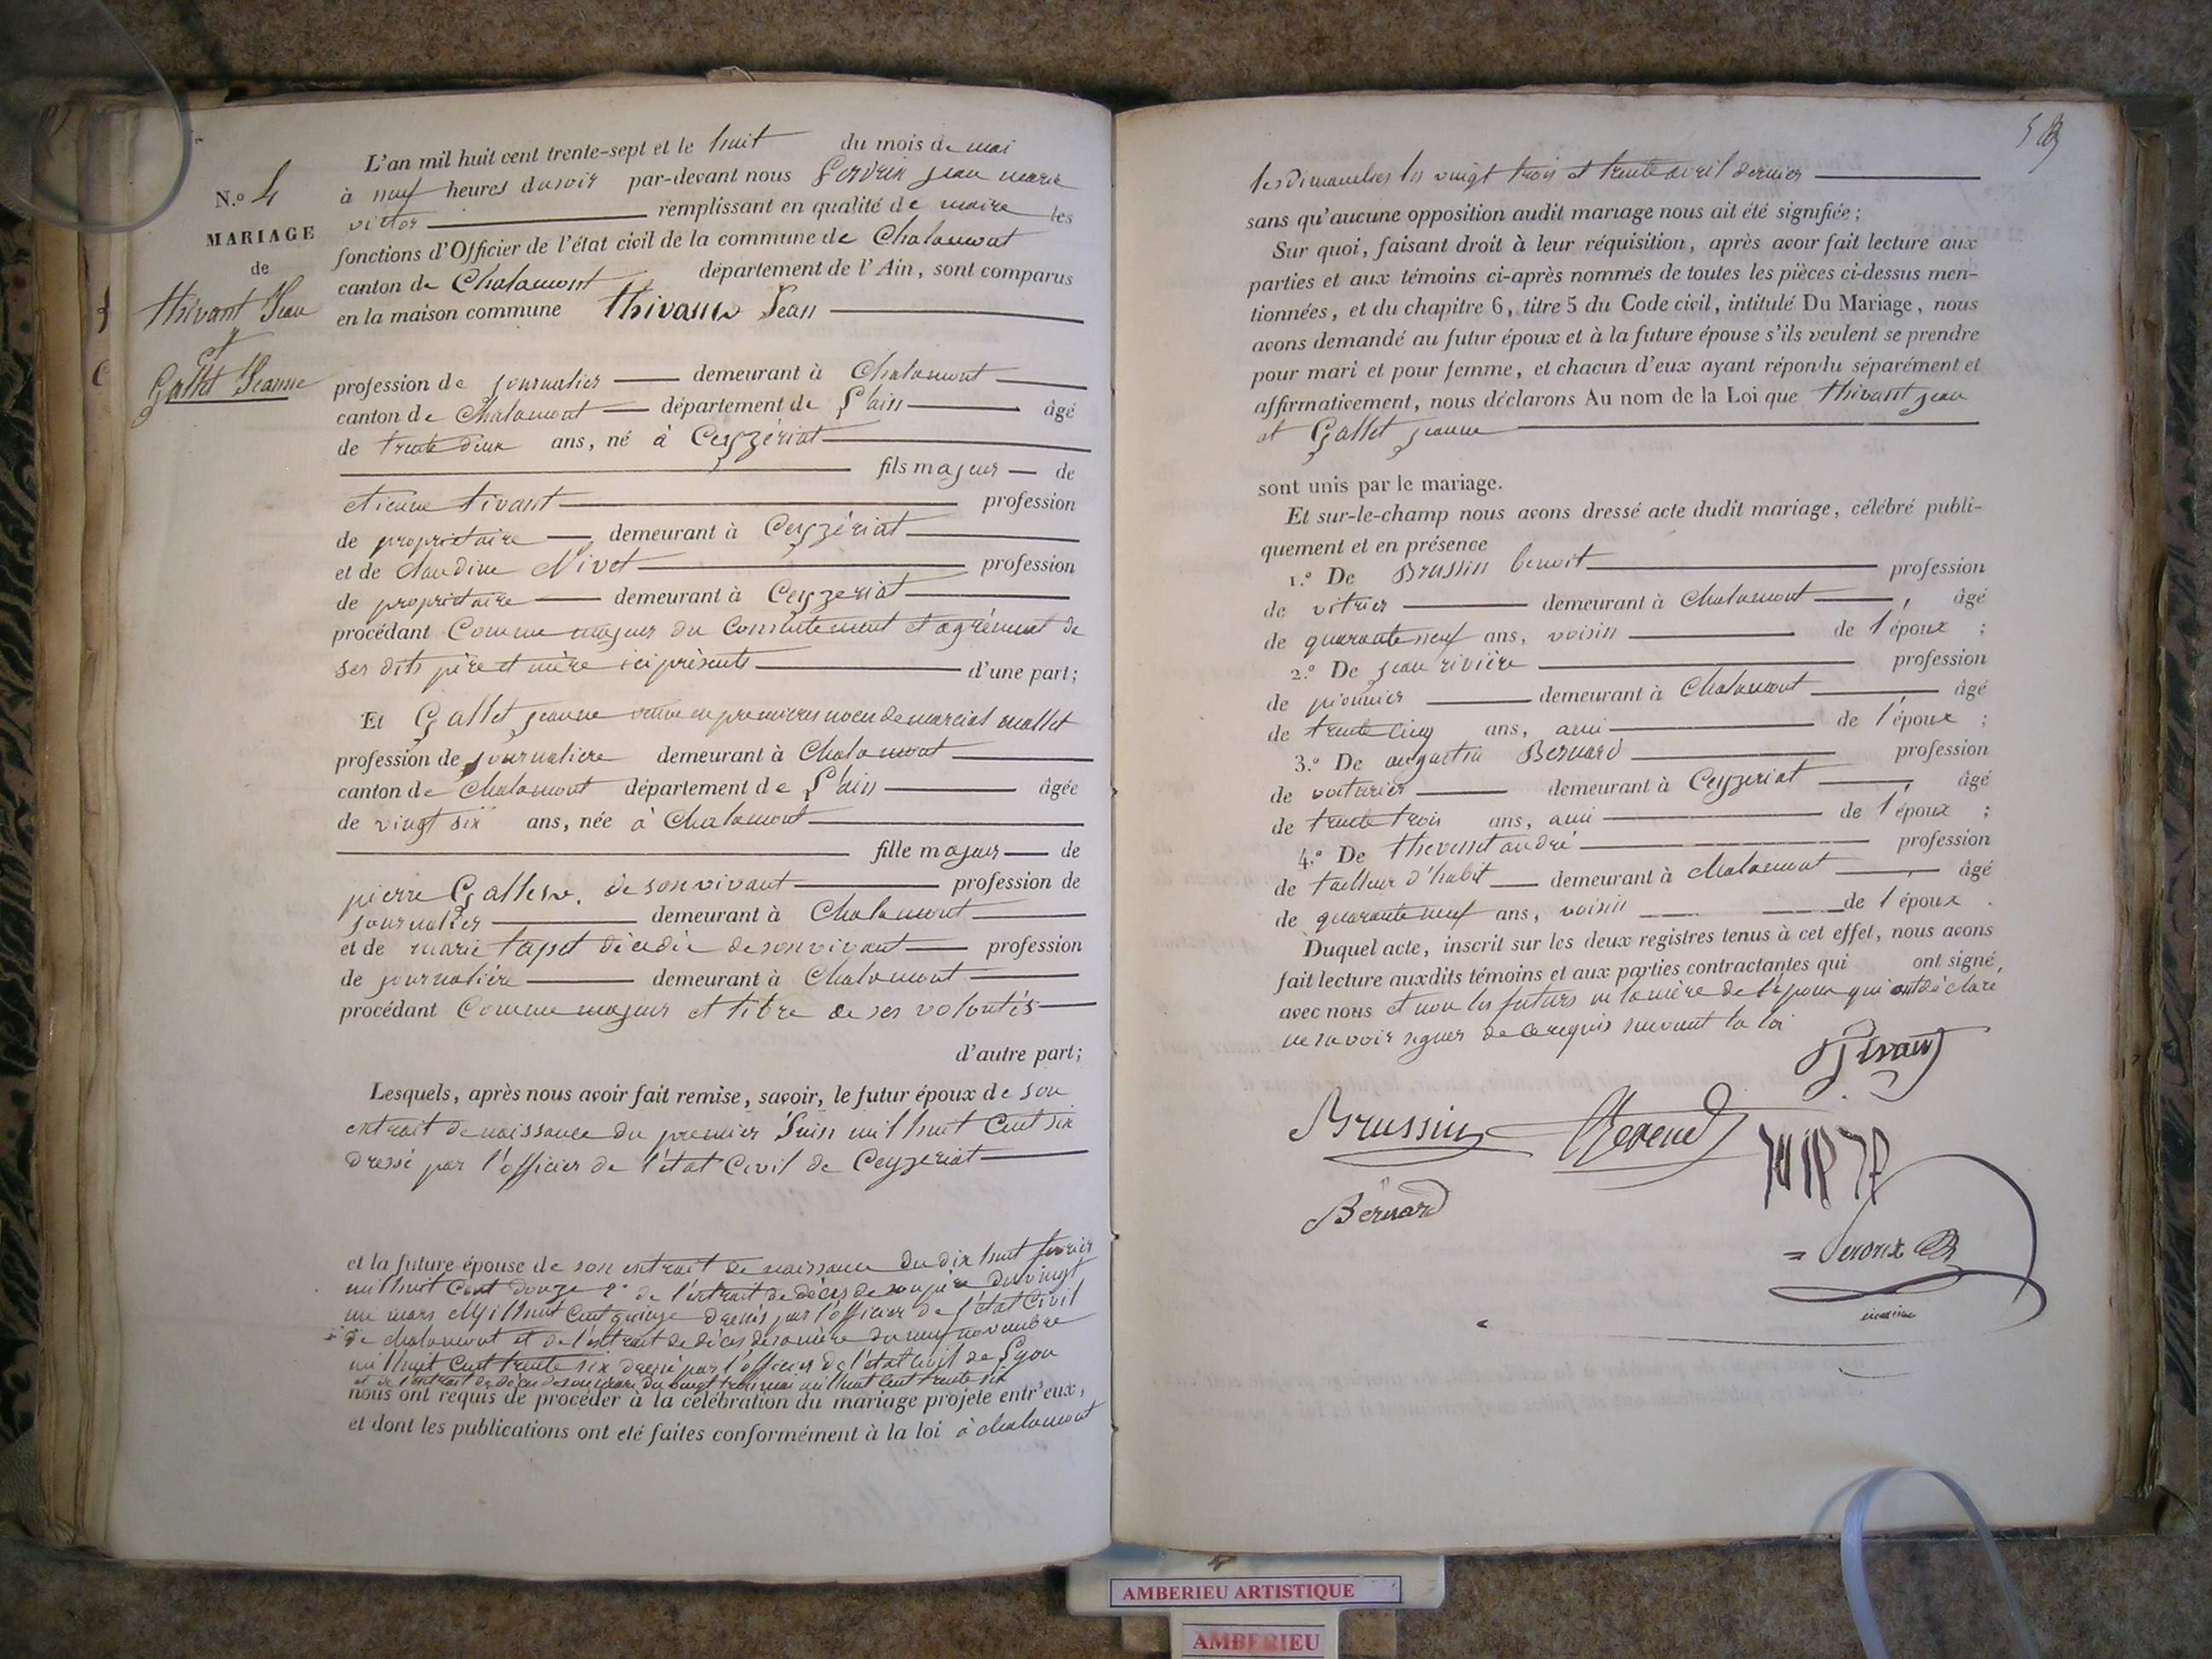 N.o 4
MARIAGE
de
thivant Jean
et
Gallet Jeanne
L'an mil huit cent trente-sept et le huit du mois de mai
à neuf heures du soir par-devant nous jean marie
victor remplissant en qualité de maire les
fonctions d'Officier de l'état civil de la commune de Chalamont
canton de Chalamont département de l'Ain, sont comparus
en la maison commune thivant Jean
profession de journalier demeurant à Chalamont
canton de Chalamont département de l'ain âgé
de trente deux ans, né à Ceyzériat
fils majeur de
etienne tivant profession
de propriétaire demeurant à Ceyzériat
et de claudine Nivet profession
de propriétaire demeurant à Ceyzeriat
procédant Comme majeur du Consentement et agrément de
ses dits père et mère ici présents d'une part;
Et Gallet jeanne veuve en premieres noces de marcial mallet
profession de journaliere demeurant à Chalamont
canton de Chalamont département de l'ain âgée
de vingt six ans, née à Chalamont
fille majeur de
pierre Gallet, de son vivant profession de
journalier demeurant à Chalamont
et de marie tapet décédée de son vivant profession
de journalière demeurant à Chalamont
procédant Comme majeur et libre de ses volontés
d'autre part;
Lesquels, après nous avoir fait remise, savoir, le futur époux de son
extrait de naissance du premier Juin mil huit Cent six
dressé par l'officier de l'état Civil de Ceyzeriat
et la future épouse de son extrait de naissance du dix huit fevrier
mil huit Cent douze 2° de l'extrait de décès de son père du vingt
un mars Mil huit Cent quinze dressés par l'officier de l'état Civil
de chalamont et de l'extrait de décès de sa mère du neuf novembre
mil huit Cent trente six dressé par l'officier de l'état Civil de Lyon
et de l'extrait de décès de son mari du vingt trois mai mil huit Cent trente six
nous ont requis de procéder à la célébration du mariage projeté entr'eux,
et dont les publications ont été faites conformément à la loi à chalamont
les dimanches les vingt trois et trente avril dernier
sans qu'aucune opposition audit mariage nous ait été signifiée;
Sur quoi, faisant droit à leur réquisition, après avoir fait lecture aux
parties et aux témoins ci-après nommés de toutes les pièces ci-dessus men-
tionnées, et du chapitre 6, titre 5 du Code civil, intitulé Du Mariage, nous
avons demandé au futur époux et à la future épouse s'ils veulent se prendre
pour mari et pour femme, et chacun d'eux ayant répondu séparément et
affirmativement, nous déclarons Au nom de la Loi que thivant jean
et Gallet jeanne
sont unis par le mariage.
Et sur-le-champ nous avons dressé acte dudit mariage, célébré publi-
quement et en présence
1.° De Brussin benoit profession
de vitrier demeurant à Chalamont, âgé
de quarante neuf ans, voisin de l'époux;
2.° De jean rivière profession
de pionnier demeurant à Chalamont, âgé
de trente cinq ans, ami de l'époux;
3.° De augustin Bernard profession
de voiturier demeurant à Ceyzeriat, âgé
de trente trois ans, ami de l'époux;
4.° De thevenet andré profession
de tailleur d'habit demeurant à chalamont, âgé
de quarante neuf ans, voisin de l'époux.
Duquel acte, inscrit sur les deux registres tenus à cet effet, nous avons
fait lecture auxdits témoins et aux parties contractantes qui ont signé,
avec nous et non les futurs ni la mère de l'époux qui ont déclaré
ne savoir signer de ce requis suivant la loi
Tivant
Brussin
Bernard
maire
AMBERIEU ARTISTIQUE
AMBERIEU